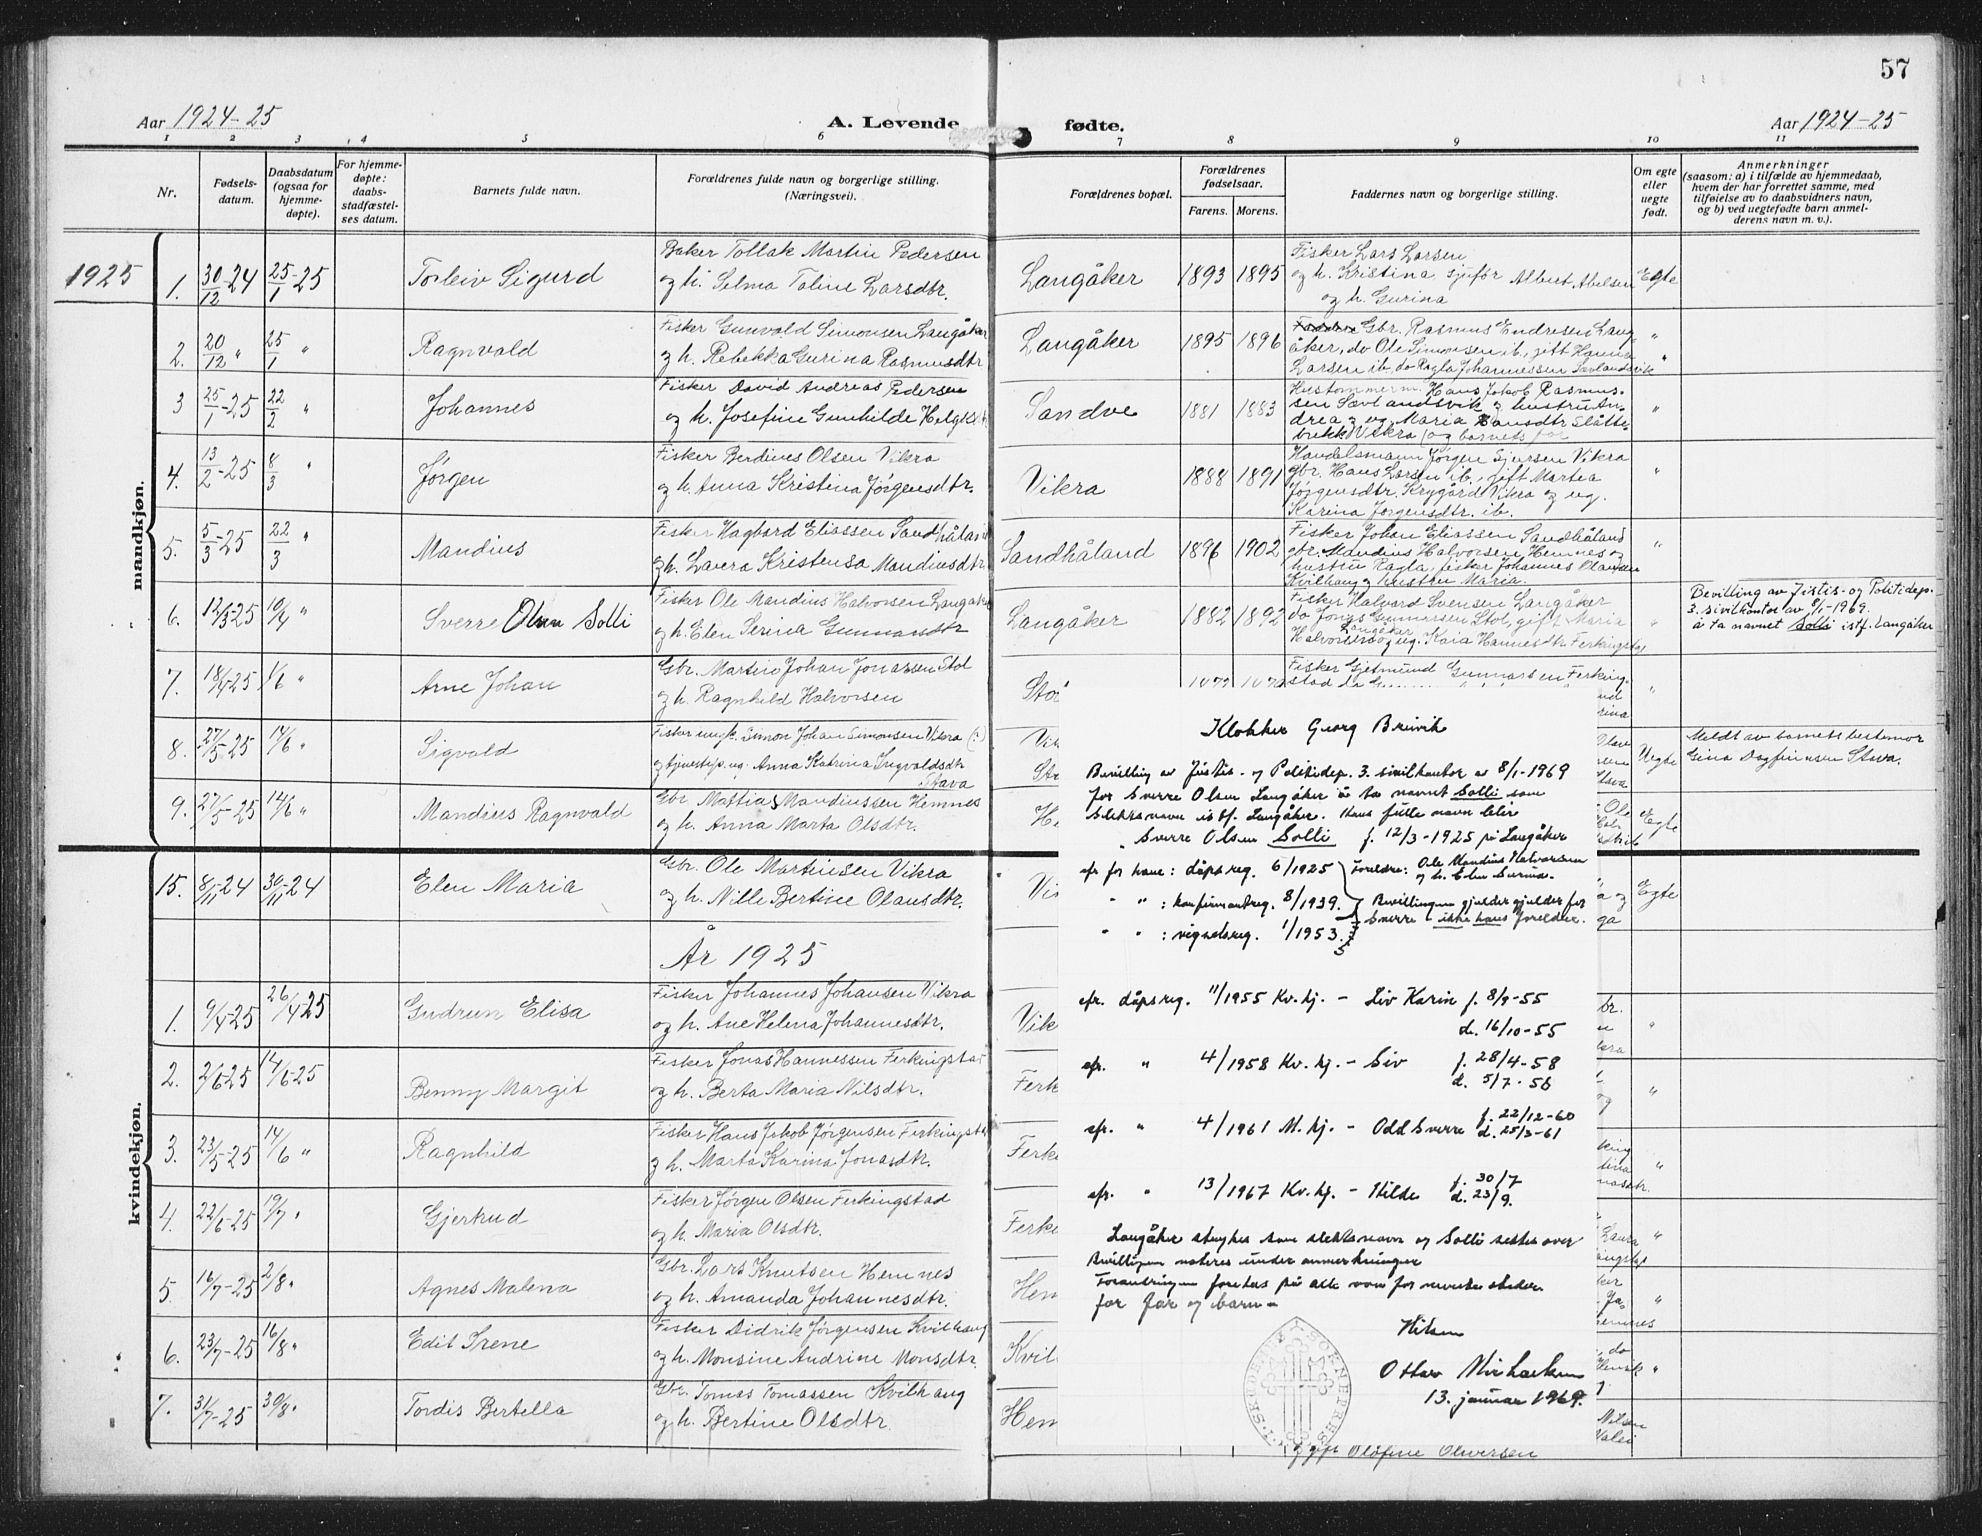 57
Aar 1924-25
A. Levende fødte.
Aar 1924-25
1 2 3 4 5 6 7 8 9 10 11
Nr.
Fødsels-
datum.
Daabsdatum
(ogsaa for
hjemme-
døpte).
For hjemme-
døpte:
daabs-
stadfæstel-
ses datum.
Barnets fulde navn.
Forældrenes fulde navn og borgerlige stilling.
(Næringsvei).
Forældrenes bopæl.
Forældrenes
fødselsaar.
Farens. Morens.
Faddernes navn og borgerlige stilling.
Om egte
eller
uegte
født.
Anmerkninger
(saasom: a) i tilfælde av hjemmedaab,
hvem der har forrettet samme, med
tilføielse av to daabsvidners navn,
og b) ved uegtefødte barn anmel-
derens navn m. v.).
mandkjøn.
1925
1. 30/12-24 25/1-25 Torleiv Sigurd
Baker Tollak Martin Pedersen
og h. Selma Taline Larsdtr.
Langåker 1893 1895
Fisker Lars Larsen
og h. Kristina, sjøfør Albert Abelsen
og h. Gurina
Egte
2. 20/12 " 25/1 " Ragnvald
Fisker Gunvald Simonsen Langåker
og h. Rebekka Gurina Rasmusdtr
Langåker 1895 1896
Gbr. Rasmus Endresen Lang-
åker, do Ole Simonsen ib., gift Hanna
Larsen ib, do Ragla Johannessen Sævlandsvik
"
3 25/1-25 22/2 " Johannes
Fisker David Andreas Pedersen
og h. Josefine Gunhilde Helgesd
Sandve 1881 1883
Hustømmerm. Hans Jakob Rasmus-
sen Sævlandsvik og hustru An-
drea og Maria Hansdtr Slåtte-
brekk Vikra (og barnets far
"
4. 13/2-25 8/3 " Jørgen
Fisker Berdines Olsen Vikra
og h. Anna Kristina Jørgensdtr.
Vikra 1888 1891
Handelsmann Jørgen Sjursen Vikra
gbr. Hans Larsen ib., gift Martea
Jørgensdtr. Krygård Vikra og ug.
Karina Jørgensdtr. ib.
"
5. 5/3-25 22/3 " Mandius
Fisker Hagbard Eliassen Sandhåland
og h. Lavera Kristensa Mandiusdtr
Sandhåland 1896 1902
Fisker Johan Eliassen Sandhåland
gbr. Mandius Halvorsen Hemnes og
hustru Ragla, fisker Johannes Olausen
Kvilhaug og hustru Maria.
"
6. 12/3-25 10/4 " Sverre Olsen Solli
Fisker Ole Mandius Halvorsen Langåker
og h. Elen Serina Gunnarsdtr
Langåker 1882 1892
Fisker Halvard Svensen Langåker
do Jonas Gunnarsen Stol, gift Maria
Halvorsen Langåker og ug. Kaia Hannesdtr. Ferkingstad
"
Bevilling av Justis- og Politidep.
3. sivilkontor av 8/1-1969.
å ta navnet Solli istf. Langåker
7. 18/4-25 1/6 " Arne Johan
Gbr. Martin Johan Jonassen Stol
og h. Ragnhild Halvorsen
Sto
Fisker Gjetmund Gunnarsen Ferking-
stad
"
8. 27/5-25 14/6 " Sigvald
Fisker ungk. Simon Johan Simonsen Vikra (?)
og tjenestep. ug. Anna Katrina Ingvaldsdtr
Stava
Vik
Sta
Uegte
Meldt av barnets bestemor
Gina Dagfinnsen Stava.
9. 27/5-25 14/6 " Mandius Ragnvald
Gbr Mattias Mandiussen Hemnes
og h. Anna Marta Olsdtr.
He
Egte
kvindekjøn.
15. 8/11-24 30/11-24 Elen Maria
Gbr. Ole Martinsen Vikra
og h. Nille Bertine Olausdtr.
Vi
Egte
År 1925
1. 9/4-25 26/4-25 Gudrun Elisa
Fisker Johannes Johansen Vikra
og h. Ane Helena Johannesdtr.
Vik
"
2. 2/6-25 14/6-25 Benny Margit
Fisker Jonas Hannessen Ferkingstad
og h. Berta Maria Nilsdtr.
Ferk
"
3. 23/5-25 14/6 " Ragnhild
Fisker Hans Jakob Jørgensen Ferkingstad
og h. Marta Karina Jonasdtr.
Ferk
"
4. 22/6-25 19/7 " Gjertrud
Fisker Jørgen Olsen Ferkingstad
og h. Maria Olsdtr.
Ferk
"
5. 16/7-25 2/8 " Agnes Malena
Gbr. Lars Knutsen Hemnes
og h. Amanda Johannesdtr.
Hem
"
6. 23/7-25 16/8 " Edit Irene
Fisker Didrik Jørgensen Kvilhaug
og h. Monsine Andrine Monsdtr.
Kvil
"
7. 31/7-25 30/8 " Tordis Bertella
Gbr. Tomas Tomassen Kvilhaug
og h. Bertine Olsdtr.
Hem
Olufine Oliversen
Klokker Georg Breivik
Bevilling av Justis- og Politidep. 3. sivilkontor av 8/1-1969
for Sverre Olsen Langåker å ta navnet Solli som
slektsnavn istf. Langåker. Hans fulle navn blir
Sverre Olsen Solli f. 12/3-1925 på Langåker
sfr for hans: dåpsreg. 6/1925
Foreldre: Ole Mandius Halvorsen
og h. Elen Serina.
" " : konfirmantreg. 8/1939.
Bevillingen gjelder for
Sverre - ikke hans foreldre.
" " : vigselsreg. 1/1953.
sfr. dåpsreg. 11/1955 Kv.kj. - Liv Karin f. 8/9-55
d. 16/10-55
sfr. " 4/1958 Kv.kj. - Siv f. 28/4-58
d. 5/7-58
sfr. " 4/1961 M.kj. - Odd Sverre f. 22/12-60
d. 25/3-61
sfr. " 13/1967 Kv.kj. - Hilde f. 30/7
d. 23/9.
Langåker strykes som slektsnavn og Solli settes over
Bevillingen noteres under anmerkninger
Forandringen foretas på alle ovenfor nevnte steder
for far og barn -
Hilsen
Ottar Michaelsen
13. januar 1969.
SKUDENES SOKNEPREST